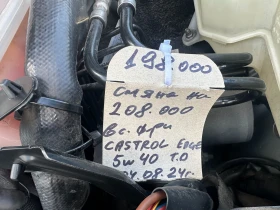 198.000
смяна на
208.000
Вс. при
CASTROL EDGE
5W40 T.O
04.08.24г.